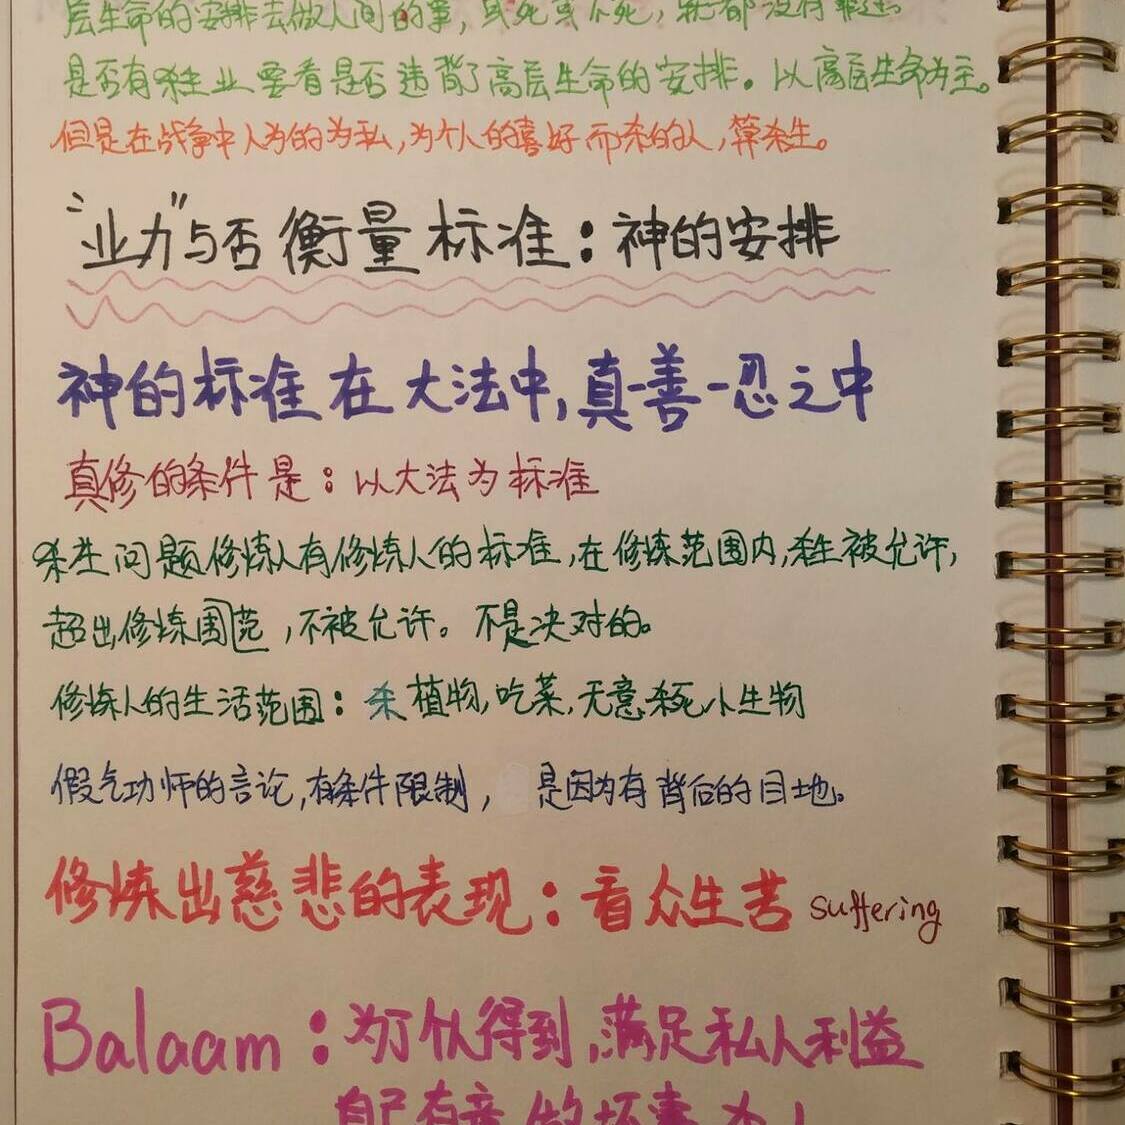 层生命的安排去做人间的事，或死或不死，就都没有罪过。
是否有杀生业要看是否违背了高层生命的安排。以高层生命为主。
但是在战争中人为的为私，为个人的喜好而杀的人，算杀生。
“业力”与否衡量标准：神的安排
神的标准在大法中，真-善-忍之中
真修的条件是：以大法为标准
杀生问题修炼人有修炼人的标准，在修炼范围内，杀生被允许，
超出修炼围范，不被允许。不是决对的。
修炼人的生活范围：杀植物，吃菜，无意杀死小生物
假气功师的言论，有条件限制，是因为有背后的目地。
修炼出慈悲的表现：看众生苦 suffering
Balaam：为了得到，满足私人利益
自己有意做坏事